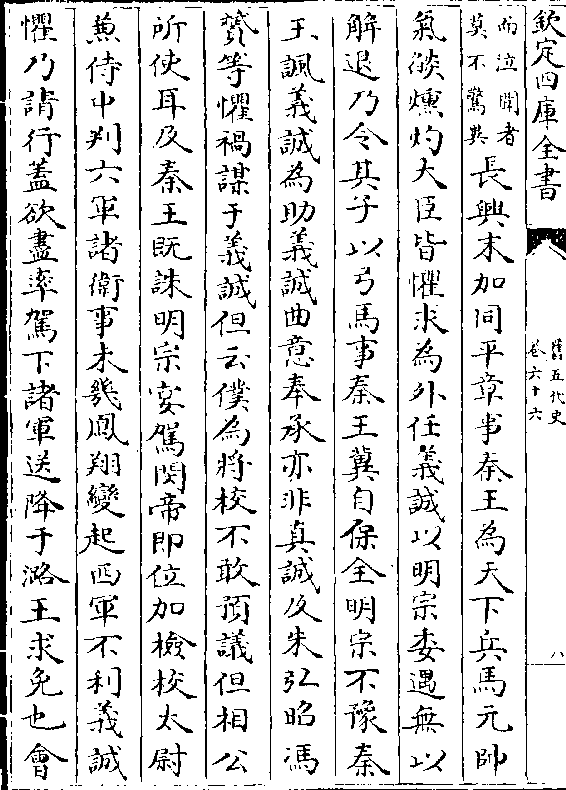 欽定四庫全書
舊五代史
卷六十六
八
而泣聞者
莫不驚異
長興末加同平章事秦王為天下兵馬元帥
氣燄燻灼大臣皆懼求為外任義誠以明宗委遇無以
解退乃令其子以弓馬事秦王冀自保全明宗不豫秦
王諷義誠為助義誠曲意奉承亦非真誠及朱弘昭馮
贇等懼禍謀于義誠但云僕為將校不敢預議但相公
所使耳及秦王既誅明宗宴駕閔帝即位加檢校太尉
兼侍中判六軍諸衛事未幾鳳翔變起西軍不利義誠
懼乃請行蓋欲盡率駕下諸軍送降于潞王求免也會